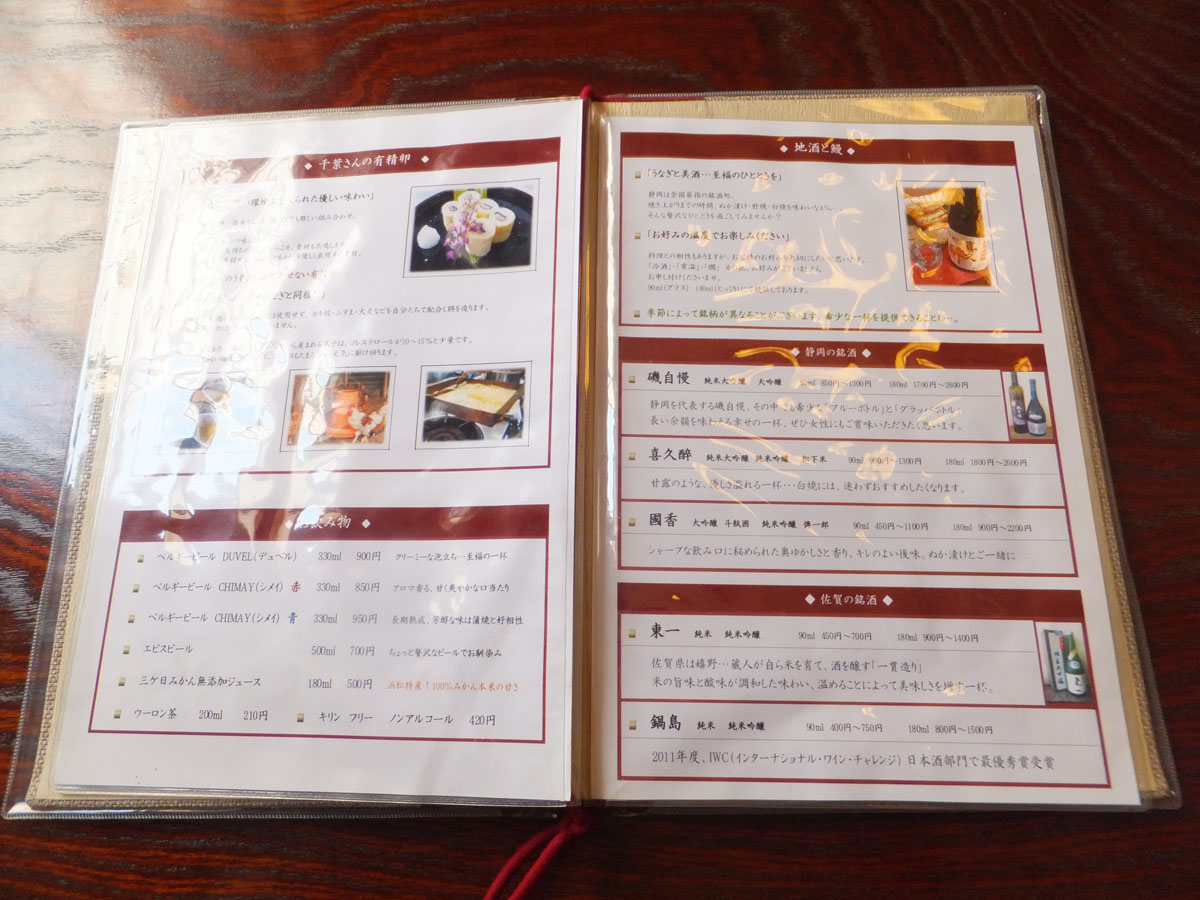 ◆ 千葉さんの有精卵 ◆
られた優しい味わい」
も難しい組み合わせ。
こそ、食材も共鳴しま
せない有
ぎと同
使用せず、カキ殻・ふすま・大麦などを自分たちで配合し餌を造ります。
いません。
ら産まれる玉子は、コレステロールが10～15%と少量です。
に駆け回ります。
お飲み物 ◆
ベルギービール DUVEL(デュベル) 330ml 900円 クリーミーな泡立ち…至福の一杯
ベルギービール CHIMAY(シメイ) 赤 330ml 850円 アロマ香る、甘く爽やかな口当たり
ベルギービール CHIMAY(シメイ) 青 330ml 950円 長期熟成、芳醇な味は蒲焼と好相性
エビスビール 500ml 700円 ちょっと贅沢なビールでお馴染み
三ケ日みかん無添加ジュース 180ml 500円 浜松特産!100%みかん本来の甘さ
ウーロン茶 200ml 210円 キリン フリー ノンアルコール 420円
◆ 地酒と鰻 ◆
「うなぎと美酒…至福のひとときを」
静岡は全国屈指の銘酒処。
焼き上がりまでの時間、ぬか漬け・肝焼・白焼を味わいながら…
そんな贅沢なひとときを過ごしてみませんか?
「お好みの温度でお楽しみください」
料理との相性もありますが、お客様のお好みを大切にしたいと思います。
「冷酒」「常温」「燗」 その他、お好みがございましたら
お申し付けくださいませ。
90ml(グラス) 180ml(とっくり)にて提供しております。
季節によって銘柄が異なることがございます。希少な一杯を提供できることに…。
◆ 静岡の銘酒 ◆
磯自慢 純米大吟醸 大吟醸 90ml 850円～1300円 180ml 1700円～2600円
静岡を代表する磯自慢、その中でも希少な「ブルーボトル」と「グラッパボトル」
長い余韻を味わえる幸せの一杯、ぜひ女性にもご賞味いただきたく思います。
喜久醉 純米大吟醸 純米吟醸 松下米 90ml 900円～1300円 180ml 1800円～2600円
甘露のような、優しさ溢れる一杯…白焼には、迷わずおすすめしたくなります。
國香 大吟醸 斗瓶囲 純米吟醸 傳一郎 90ml 450円～1100円 180ml 900円～2200円
シャープな飲み口に秘められた奥ゆかしさと香り、キレのよい後味。ぬか漬けとご一緒に
◆ 佐賀の銘酒 ◆
東一 純米 純米吟醸 90ml 450円～700円 180ml 900円～1400円
佐賀県は嬉野…蔵人が自ら米を育て、酒を醸す「一貫造り」
米の旨味と酸味が調和した味わい、温めることによって美味しさを増す一杯。
鍋島 純米 純米吟醸 90ml 400円～750円 180ml 800円～1500円
2011年度、IWC(インターナショナル・ワイン・チャレンジ) 日本酒部門で最優秀賞受賞